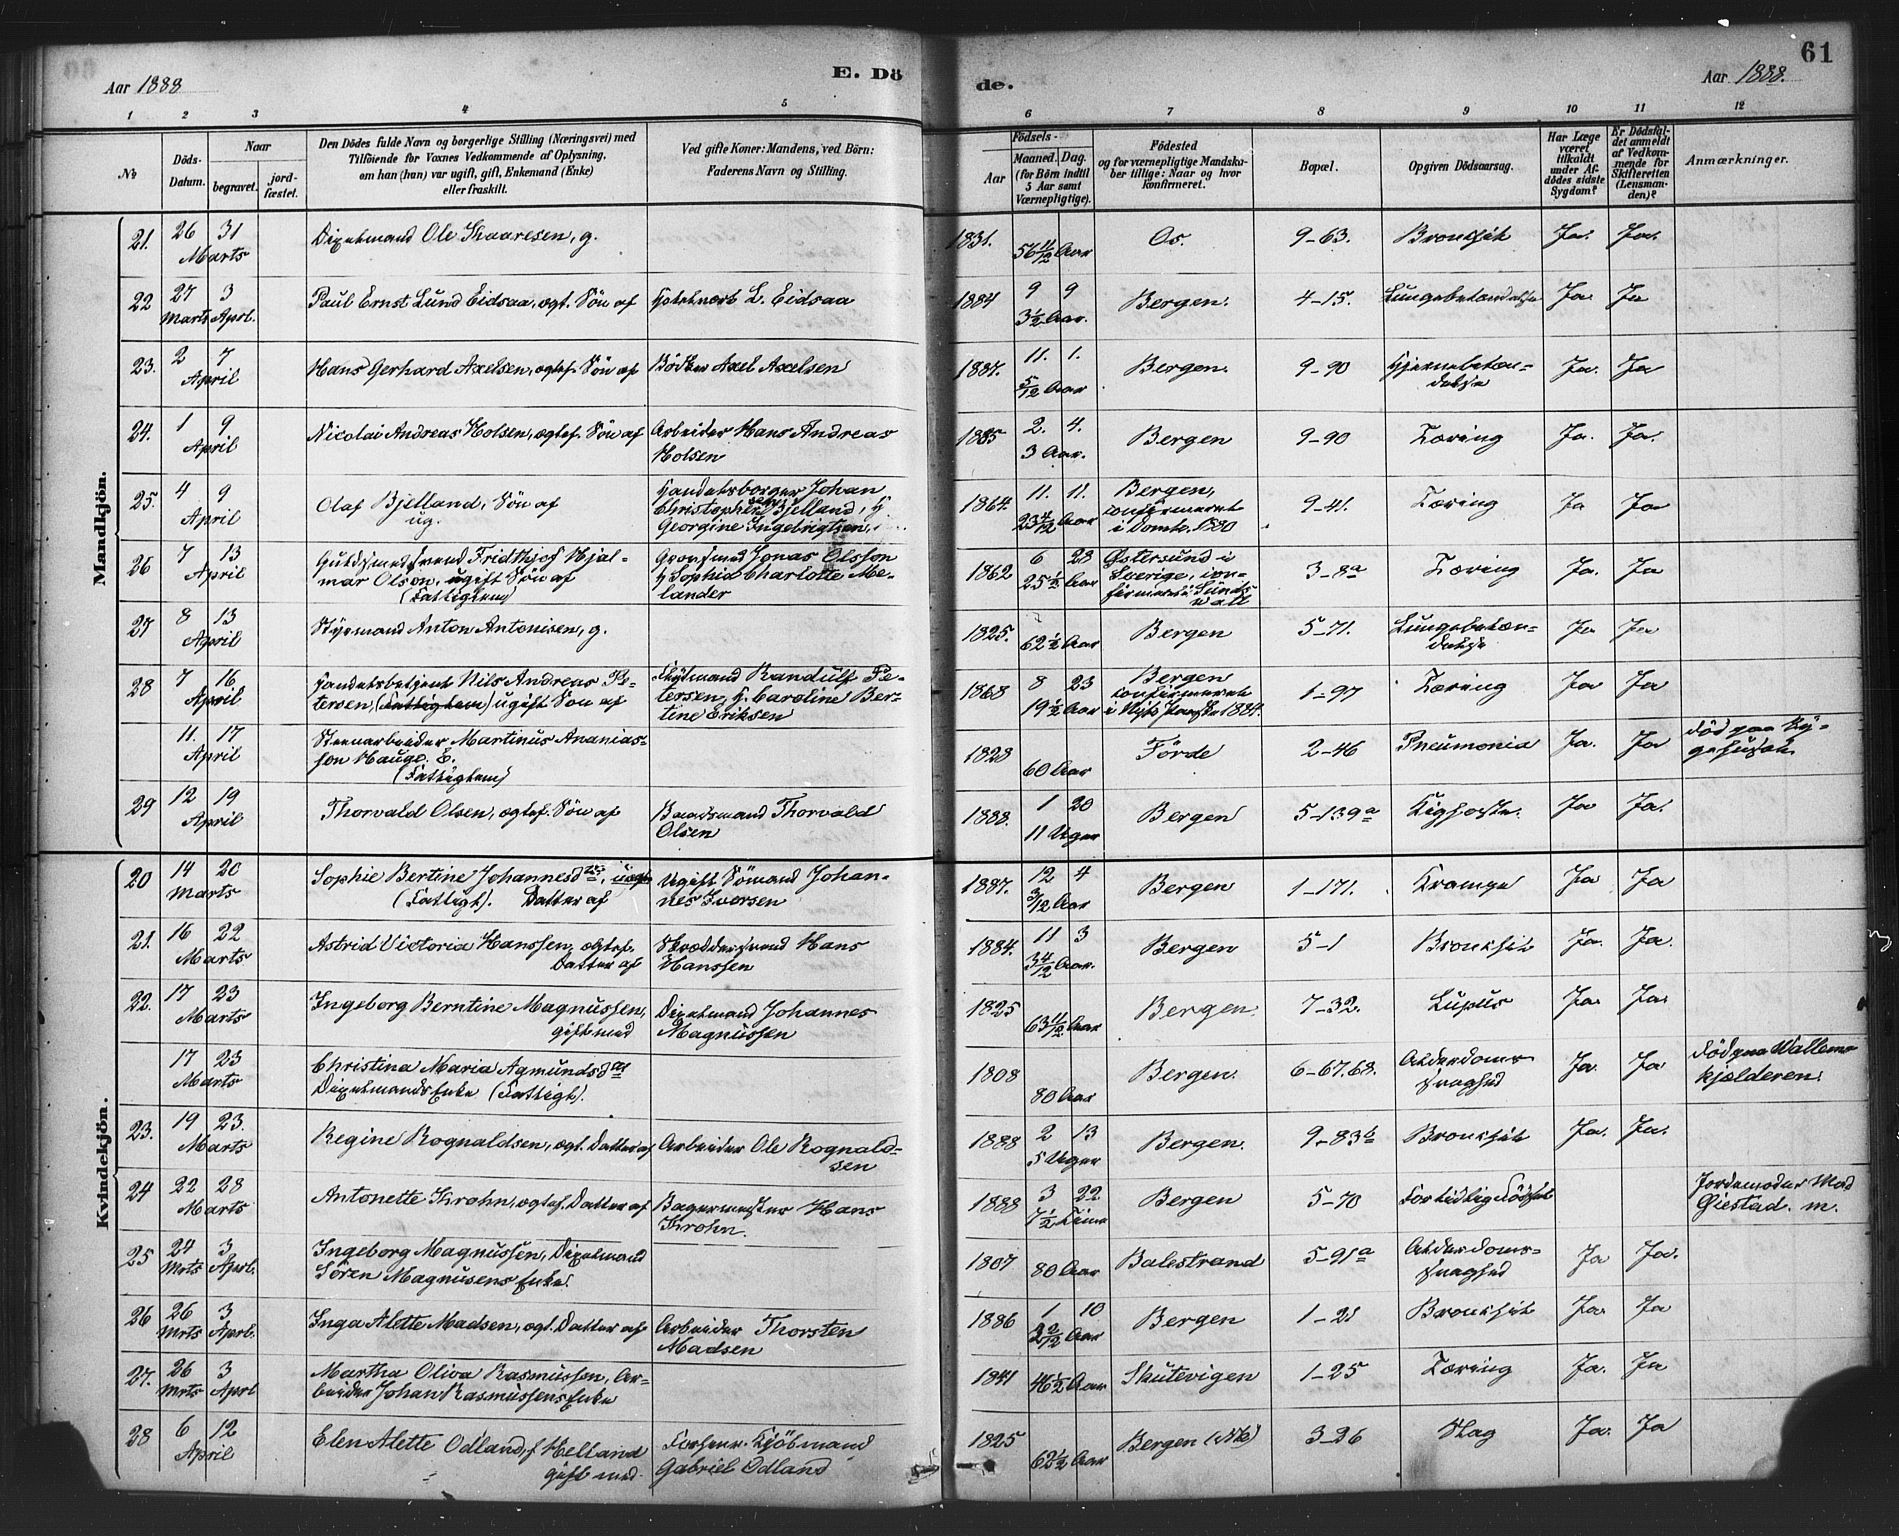 61
Aar 1888
E. Dö
de.
Aar 1888.
1 2 3 4 5 6 7 8 9 10 11 12
No
Döds-Datum.
Naar
begravet.
jord-fæstet.
Den Dödes fulde Navn og borgerlige Stilling (Næringsvei) med
Tilföiende for Voxnes Vedkommende af Oplysning,
om han (hun) var ugift, gift, Enkemand (Enke)
eller fraskilt.
Ved gifte Koner: Mandens, ved Börn:
Faderens Navn og Stilling.
Födsels-
Aar
Maaned. Dag.
(for Börn indtil
5 Aar samt
Værnepligtige).
Födested
og for værnepligtige Mandska-
ber tillige: Naar og hvor
konfirmeret.
Bopæl.
Opgiven Dödsaarsag.
Har Læge
været
tilkaldt
under Af-
dödes sidste
Sygdom?
Er Dödsfal-
det anmeldt
af Vedkom-
mende for
Skifteretten
(Lensman-
den)?
Anmærkninger.
Mandkjön.
21. 26 31 Marts Dixelmand Ole Thoresen, g. 1831. 56 11/12 Aar Os. 9-63. Bronkhit Ja. Ja.
22 27 Marts 3 Aprl. Paul Ernst Lund Eidsaa, ægt. Sön af L. Eidsaa 1884 9 9 3½ Aar. Bergen. 4-15. Lungebetændelse Ja Ja
23. 2 7 April Hans Gerhard Axelsen, ægtef. Sön af Bödker Axel Axelsen 1887. 11. 1. 5/12 Aar Bergen. 9-90 Hjernebetæn-
delse Ja. Ja
24. 1 9 April Nicolai Andreas Holsen, ægtef. Sön af Arbeider Hans Andreas
Holsen 1885 2. 4. 3 Aar. Bergen 9-90 Tæring Ja. Ja.
25. 4 9 April Olaf Bjelland, Sön af
ug. Handelsborger Johan
Christophersen Bjelland, H
Georgine Ingebrigtsen, 1864. 11. 11. 23 4/12 Aar Bergen,
confirmeret
i Domk. 1880 9-41. Tæring Ja Ja
26 7 13 April Guldsmedsvend Fridthjof Hjal-
mar Olson, ugift Sön af
(Fattiglem) Grovsmed Jonas Olsson
H Sophia Charlotte Me-
lander 1862 6 28 25½ Aar Østersund i
Sverige, con-
firmeret i Sunds-
wall 3-8a Tæring Ja. Ja
27 8 13 April Styrmand Anton Antonisen, g. 1825. 62½ Aar Bergen 5-71. Lungebetæn-
delse Ja Ja
28 7 16 April Handelsbetjent Nils Andreas Pe-
tersen, (Fattiglem) ugift Sön af Randulf Pe-
tersen, H. Caroline Ber-
tine Eriksen 1868 8 23 19½ Aar Bergen
confirmeret
i Nyk. 1884. 1-97 Tæring Ja Ja
11. 17 April Stenarbeider Martinus Ananias-
son Hauge. E.
(Fattiglem) 1828 60 Aar Förde 2-46 Pneumonia Ja. Ja död paa Sy-
gehuset
29 12 19 April Thorvald Olsen, ægtef. Sön af Baadsmand Thorvald
Olsen 1888. 1 20 11 Uger Bergen 5-139a Kighoste. Ja Ja.
Kvindekjön.
20 14 20 Marts Sophie Bertine Johannesdtr,
(Fattigt). Datter af Ugift Sömand Johan-
nes Iversen 1887. 12 4 3/12 Aar Bergen 1-171. Krampe Ja Ja
21. 16 22 Marts Astrid Victoria Hanssen, ægtef.
Datter af Skræddersvend Hans
Hanssen 1884. 11 3 3 4/12 Aar. Bergen 5-1 Bronkhit Ja. Ja.
22. 17 23 Marts Ingeborg Berntine Magnussen,
gift med Dixelmand Johannes
Magnussen 1825 63 11/12 Aar Bergen. 7-32. Lupus Ja. Ja.
17 23 Marts Christina Maria Agmundsdtr
Dixelmands Enke (Fattigt). 1808 80 Aar Bergen. 6-67.68. Alderdoms-
svaghed Ja. Ja. död paa Wallem-
kjælderen.
23. 19 23. Marts Regine Rognaldsen, ægt. Datter af Arbeider Ole Rognald-
sen 1888 2 13 5 Uger Bergen. 9-83b Bronkhit Ja. Ja.
24 22 28 Marts Antonette Krohn, ægtef. Datter af Bagermester Hans
Krohn. 1888 3 22 7½ Time Bergen 5-70 For tidlig Födsel Jordemoder Mad
Giestad. m.
25 24 Mrts 3 Aprl. Ingeborg Magnussen, Dixelmand
Sören Magnusens Enke. 1807 80 Aar Balestrand 5-91a Alderdoms-
svaghed Ja Ja.
26 26 Mrts 3 Aprl. Inga Alette Madsen, ægt. Datter af Arbeider Thorsten
Madsen 1886 1 10 2 2/12 Aar Bergen 1-21 Bronkhit Ja. Ja
27. 26 Mrts 3 Aprl Martha Oliva Rasmussen, Ar-
beider Johan Rasmussens Enke 1841 46½ Aar Skutevigen 1-25 Tæring Ja. Ja
28 6 12 April Elen Alette Odland, f Helland
gift med Forhenv. Kjöbmand
Gabriel Odland 1825 62½ Aar Bergen (Nk) 3-26 Slag Ja. Ja